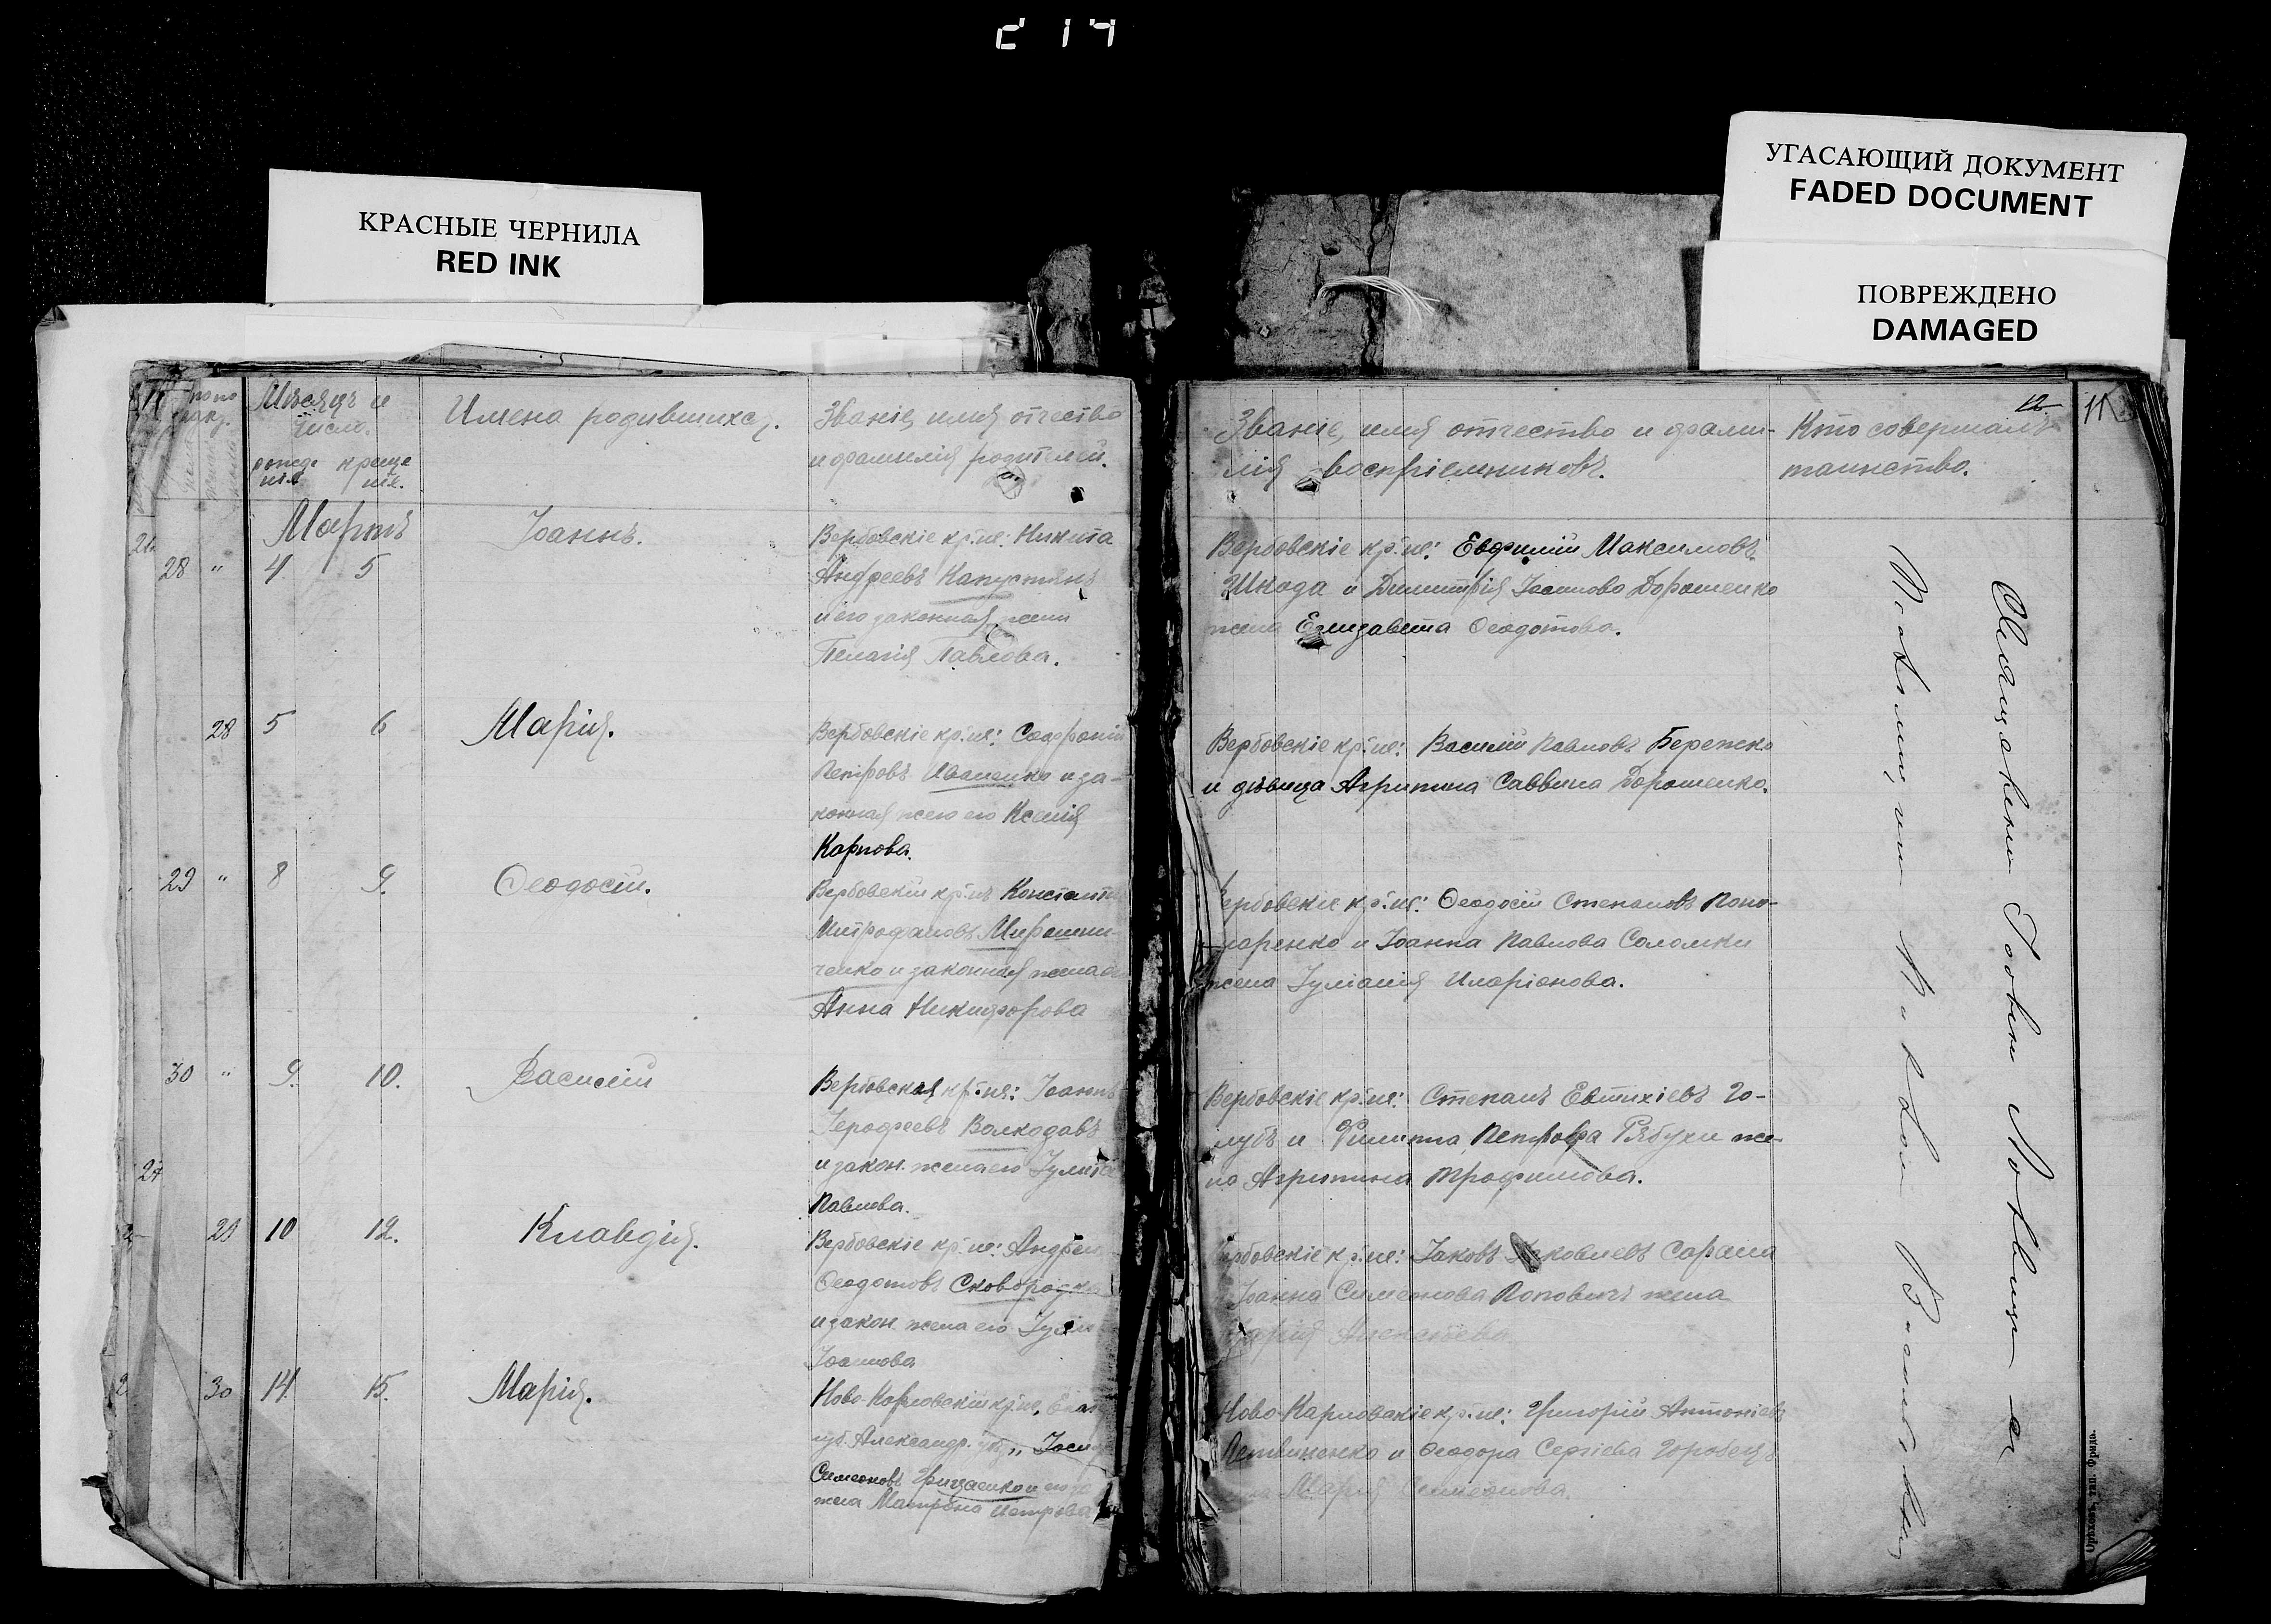 214
КРАСНЫЕ ЧЕРНИЛА
RED INK
УГАСАЮЩИЙ ДОКУМЕНТ
FADED DOCUMENT
ПОВРЕЖДЕНО
DAMAGED
Мѣсяцъ и
число.
рожде
нія
креще
нія.
Имена родившихся.
Званіе, имя отчество
и фамилія родителей.
Мартъ
28 " 4 5
Іоаннъ.
Вербовскіе кр.не: Никита
Андреевъ Капустянъ
и его законная жена
Пелагія Павлова.
28 5 6
Марія.
Вербовскіе кр.не: Софроній
Петровъ Иваненко и за-
конная жена его Ксенія
Карпова.
29 " 8 9.
Ѳеодосій.
Вербовскій кр.нъ Константинъ
Митрофановъ Мирошни-
ченко и законная жена его
Анна Никифорова
30 " 9. 10.
Василій
Вербовскія кр.не: Іоаннъ
Іерофеевъ Волкодавъ
и закон. жена его Іулитта
Павлова.
29 10 12.
Клавдія.
Вербовскіе кр.не: Андрей
Ѳеодотовъ Сковородка
и закон. жена его Іулія
Іоаннова
30 14. 15.
Марія.
Ново-Карловскій кр.нъ, Екат
губ. Александр. у.
Симеоновъ Грицаенко и его за
жена Матрона Петрова
12.
11
Званіе, имя отчество и фами-
лія воспріемниковъ.
Кто совершалъ
таинство.
Вербовскіе кр.не: Евфимій Максимовъ
Шкода и Димитрія Іоаннова Дорошенко
жена Елизавета Ѳеодотова.
Вербовскіе кр.не: Василій Павловъ Бережко
и дѣвица Агрипина Саввина Дорошенко.
Вербовскіе кр.не: Ѳеодосій Степановъ Поно-
маренко и Іоанна Павлова Соломки
жена Іуліанія Иларіонова.
Вербовскіе кр.не: Степанъ Евтихіевъ Го-
лубъ и Филиппа Петрова Рябухи же-
на Агрипина Трофимова.
Вербовскіе кр.не: Іаковъ Яковлевъ Сарана
Іоанна Симеонова Поповичъ жена
Марія
Ново-Карловскіе кр.не: Григорій Антоніевъ
Литвиненко и Ѳеодора Сергіева Горовецъ
жена Марія Симеонова.
Священникъ Іоаннъ Новицкій съ
Псаломщикомъ
Орѣховъ, тип. Фрида.